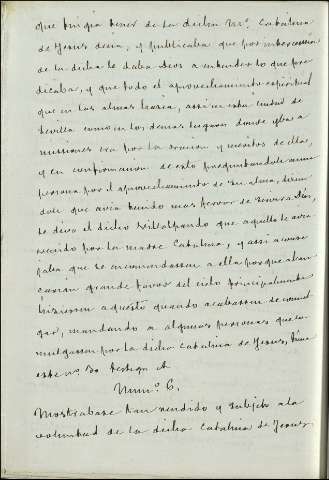 que finque tener de la dicha Me. Catalina
de Jesus decia, y publicaba que por intercession
de la dicha le daba Dios a entender lo que pre
dicaba, y que todo el aprovechamiento espiritual
que en las almas hacia, assi en esta ciudad de
Sevilla como en los demas lugares donde yba a
missiones era por la oracion y meritos de ella,
y en confirmacion de esto preguntandole cierta
persona por el aprovechamiento de su alma, dicien
dole que avia tenido mas fervor de servir a Dios,
le dixo el dicho Villalpando que aquello le avia
venido por la madre Catalina, y assi aconse
jaba que se encomendassen a ella porque alcan
çarian grande favor del cielo principalmente
hiciessen aquesto quando acabassen de comul
gar, mandando a algunas personas que co
mulgassen por la dicha Catalina de Jesus, tiene
este nº 30 testigos
Num.º 6.
Mostrabase tan rendido y subjeto a la
voluntad de la dicha Catalina de Jesus